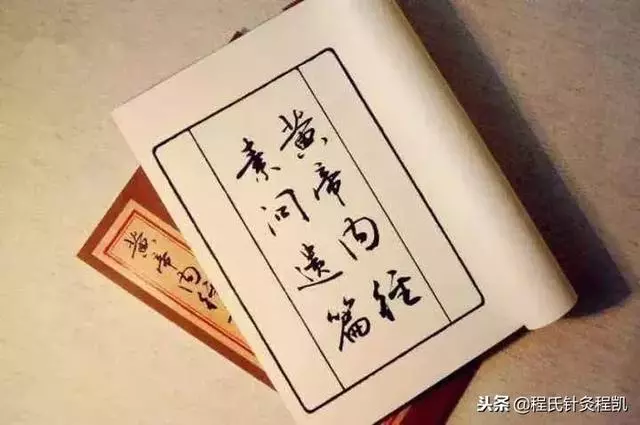 黄帝内经
素问遗篇
黄帝内经
头条@程氏针灸程凯